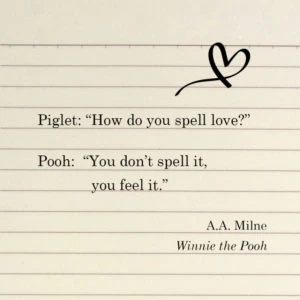 Piglet: “How do you spell love?”
Pooh: “You don’t spell it,
you feel it.”
A.A. Milne
Winnie the Pooh